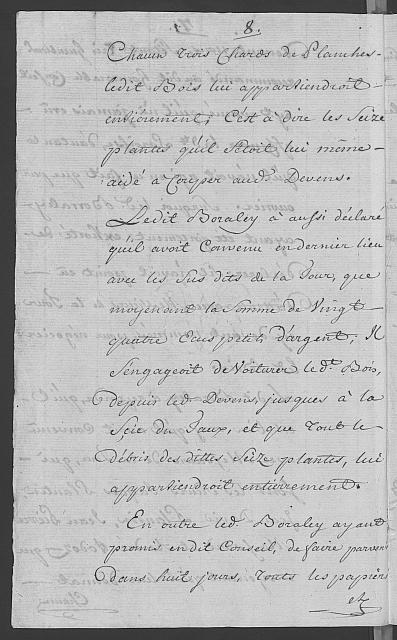 8.
Chacun trois Chards de Planches
ledit Bois lui appartiendroit
entiérement, C'est à dire les Seize
plantes qu'il Etoit lui même
aidé à Couper aud.t Devens.
Ledit Boraley à aussi déclaré
qu'il avoit Convenu en dernier lieu
avec les Sus dits de la Tour, que
moÿenant la Somme de Vingt
quatre Ecus petits d'argent, Il
S'engageoit de Voiturer led.t Bois,
depuis led.t Devens, jusques à la
Scie du Vaux, et que Tout le
débris des dittes Seize plantes, lui
appartiendroit entiérement.
En outre led.t Boraley ayant
promis en dit Conseil, de faire parvenir
dans huit jours, touts les papiers